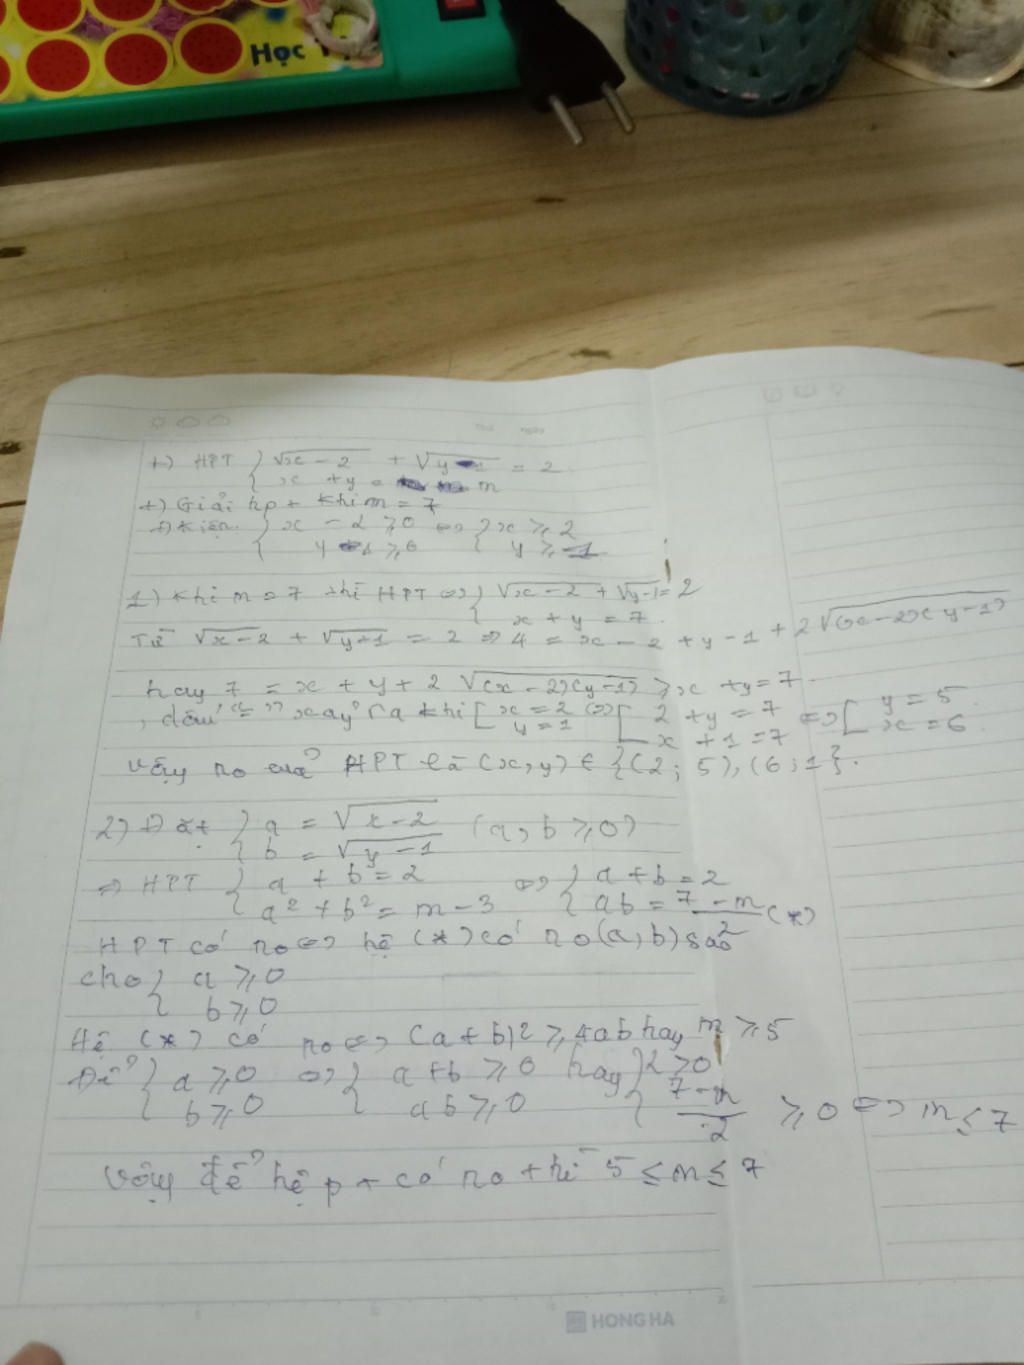 Học
+) HPT { √x-2 + √y-1 = 2
x + y = m
+) Giải hpt khi m = 7
Đkiện { x - 2 ≥ 0 <=> { x ≥ 2
y - 1 ≥ 0 { y ≥ 1
1) Khi m = 7 thì HPT <=> { √x-2 + √y-1 = 2
x + y = 7
Từ √x-2 + √y-1 = 2 => 4 = x - 2 + y - 1 + 2√(x-2)(y-1)
hay 7 = x + y + 2 √(x-2)(y-1) ≥ x + y = 7
, dấu "=" xảy ra khi [ x = 2 <=> [ 2 + y = 7 <=> [ y = 5
y = 1 x + 1 = 7 x = 6
Vậy no của HPT là (x, y) ∈ {(2; 5), (6; 1}.
2) Đặt { a = √x-2 (a, b ≥ 0)
b = √y-1
=> HPT { a + b = 2 <=> { a + b = 2
a² + b² = m - 3 { ab = 7-m/2 (*)
HPT có no <=> hệ (*) có no (a, b) sao
cho { a ≥ 0
b ≥ 0
Hệ (*) có no <=> (a + b)2 ≥ 4ab hay m ≥ 5
Để { a ≥ 0 <=> { a + b ≥ 0 hay { 2 ≥ 0
b ≥ 0 ab ≥ 0 7-m/2 ≥ 0 <=> m ≤ 7
Vậy để hệ pt có no thì 5 ≤ m ≤ 7
HONG HA